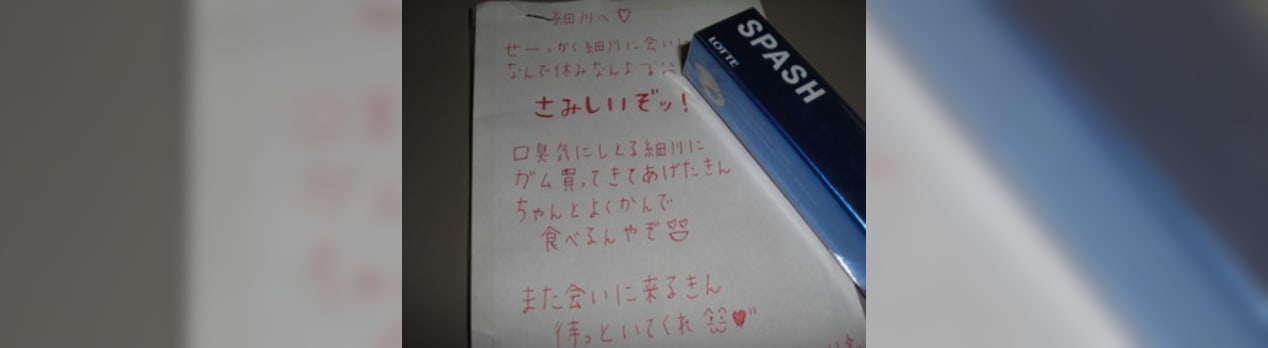 細川へ♡
せーっかく細川に会い
なんで休みなんよ
さみしいぞッ!
口臭気にしとる細川に
ガム買ってきてあげたきん
ちゃんとよくかんで
食べるんやぞ
また会いに来るきん
待っといてくれ ♥
LOTTE
SPASH